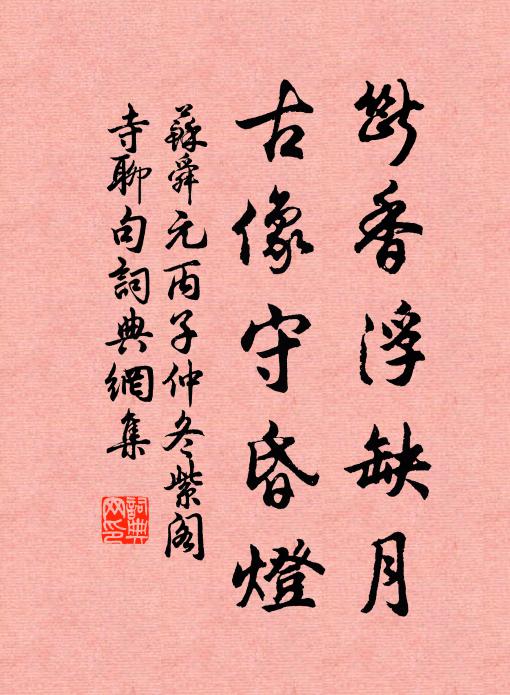 斷香浮缺月
古像守昏燈
蘇舜元丙子仲冬紫阁
寺聊句詞典網集
詞典
网印